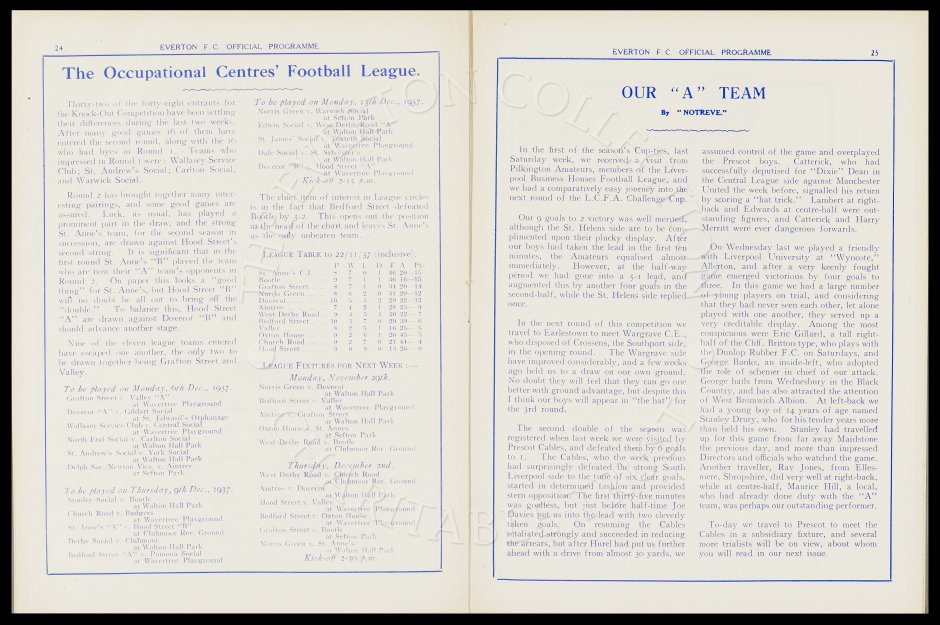 24
EVERTON F.C. OFFICIAL PROGRAMME
The Occupational Centres' Football League.
Thirty-two of the forty-eight entrants for
the Knock-Out Competition have been settling
their differences during the last two weeks.
After many good games 16 of them have
entered the second round, along with the 16
who had byes in Round 1. Teams who
impressed in Round 1 were: Wallasey Service
Club; St. Andrew's Social; Carlton Social,
and Warwick Social.
Round 2 has brought together many inter-
esting pairings, and some good games are
assured. Luck, as usual, has played a
prominent part in the draw, and the strong
St. Anne's team, for the second season in
succession, are drawn against Hood Street's
second string. It is significant that in the
first round St. Anne's "B" played the team
who are now their "A" team's opponents in
Round 2. On paper this looks a "good
thing" for St. Anne's, but Hood Street "B"
will no doubt be all out to bring off the
"double." To balance this, Hood Street
"A" are drawn against Dovecot "B" and
should advance another stage.
Nine of the eleven league teams entered
have escaped one another, the only two to
be drawn together being Grafton Street and
Valley.
To be played on Monday, 6th Dec., 1937
Grafton Street v. Valley "A"
at Wavertree Playground
Dovecot "A" v. Gildart Social
at St. Edward's Orphanage
Wallasey Service Club v. Central Social
at Wavertree Playground
North End Social v. Carlton Social
at Walton Hall Park
St. Andrew's Social v. York Social
at Walton Hall Park
Delph Soc. Newton Vics. v. Aintree
at Sefton Park
To be played on Thursday, 9th Dec., 1937.
Stanley Social v. Bootle
at Walton Hall Park
Church Road v. Badgers
at Wavertree Playground
St. Anne's "A" v. Hood Street "B"
at Clubmoor Rec. Ground
Derby Social v. Clubmoor
at Walton Hall Park
Bedford Street "A" v. Pomona Social
at Wavertree Playground
To be played on Monday, 13th Dec., 1937
Norris Green v. Warwick Social
at Sefton Park
Edwin Social v. West Derby Road "A"
at Walton Hall Park
St. James' Social v. Toxteth Social
at Wavertree Playground
Dale Social v. St. Sylvester's
at Walton Hall Park
Dovecot "B" v. Hood Street "A"
at Wavertree Playground
Kick-off 2-15 p.m.
The chief item of interest in League circles
is the fact that Bedford Street defeated
Bootle by 3-2. This opens out the position
at the head of the chart and leaves St. Anne's
as the only unbeaten team.
LEAGUE TABLE to 22/11/37 (inclusive).
P W L D F A Pts
St. Anne's C.I.
Bootle
Grafton Street
Norris Green
Dovecot
Aintree
West Derby Road
Bedford Street
Valley
Oxton House
Church Road
Hood Street
LEAGUE FIXTURES FOR NEXT WEEK:—
Monday, November 29th.
Norris Green v. Dovecot
at Walton Hall Park
Bedford Street v. Valley
at Wavertree Playground
Aintree v. Grafton Street
at Walton Hall Park
Oxton House v. St. Annes
at Sefton Park
West Derby Road v. Bootle
at Clubmoor Rec. Ground
Thursday, December 2nd.
West Derby Road v. Church Road
at Clubmoor Rec. Ground
Aintree v. Dovecot
at Wavertree Playground
Hood Street v. Valley
at Wavertree Playground
Bedford Street v. Oxton House
at Wavertree Playground
Grafton Street v. Bootle
at Sefton Park
Norris Green v. St. Anne's
at Walton Hall Park
Kick-off 2-30 p.m.
EVERTON F.C. OFFICIAL PROGRAMME
25
OUR "A" TEAM
By "NOTREVE."
In the first of the season's Cup-ties, last
Saturday week, we received a visit from
Pilkington Amateurs, members of the Liver-
pool Business Houses Football League, and
we had a comparatively easy journey into the
next round of the L.C.F.A. Challenge Cup.
Our 9 goals to 2 victory was well merited,
although the St. Helens side are to be com-
plimented upon their plucky display. After
our boys had taken the lead in the first ten
minutes, the Amateurs equalised almost
immediately. However, at the half-way
period we had gone into a 5-1 lead, and
augmented this by another four goals in the
second-half, while the St. Helens side replied
once.
In the next round of this competition we
travel to Earlestown to meet Wargrave C.E.,
who disposed of Crossens, the Southport side,
in the opening round. The Wargrave side
have improved considerably, and a few weeks
ago held us to a draw on our own ground.
No doubt they will feel that they can go one
better with ground advantage, but despite this
I think our boys will appear in "the hat" for
the 3rd round.
The second double of the season was
registered when last week we were visited by
Prescot Cables, and defeated them by 6 goals
to 1. The Cables, who the week previous
had surprisingly defeated the strong South
Liverpool side to the tune of six clear goals,
started in determined fashion and provided
stern opposition. The first thirty-five minutes
was goalless, but just before half-time Joe
Davies put us into the lead with two cleverly
taken goals. On resuming the Cables
retaliated strongly and succeeded in reducing
the arrears, but after Hurel had put us further
ahead with a drive from almost 30 yards, we
assumed control of the game and overplayed
the Prescot boys. Catterick, who had
successfully deputised for "Dixie" Dean in
the Central League side against Manchester
United the week before, signalled his return
by scoring a "hat trick." Lambert at right-
back and Edwards at centre-half were out-
standing figures, and Catterick and Harry
Merritt were ever dangerous forwards.
On Wednesday last we played a friendly
with Liverpool University at "Wyncote,"
Allerton, and after a very keenly fought
game emerged victorious by four goals to
three. In this game we had a large number
of young players on trial, and considering
that they had never seen each other, let alone
played with one another, they served up a
very creditable display. Among the most
conspicuous were Eric Gillard, a tall right-
half of the Cliff. Britton type, who plays with
the Dunlop Rubber F.C. on Saturdays, and
George Bonks, an inside-left, who adopted
the role of schemer in chief of our attack.
George hails from Wednesbury in the Black
Country, and has also attracted the attention
of West Bromwich Albion. At left-back we
had a young boy of 14 years of age named
Stanley Drury, who for his tender years more
than held his own. Stanley had travelled
up for this game from far away Maidstone
the previous day, and more than impressed
Directors and officials who watched the game.
Another traveller, Ray Jones, from Elles-
mere, Shropshire, did very well at right-back,
while at centre-half, Maurice Hill, a local,
who had already done duty with the "A"
team, was perhaps our outstanding performer.
To-day we travel to Prescot to meet the
Cables in a subsidiary fixture, and several
more trialists will be on view, about whom
you will read in our next issue.